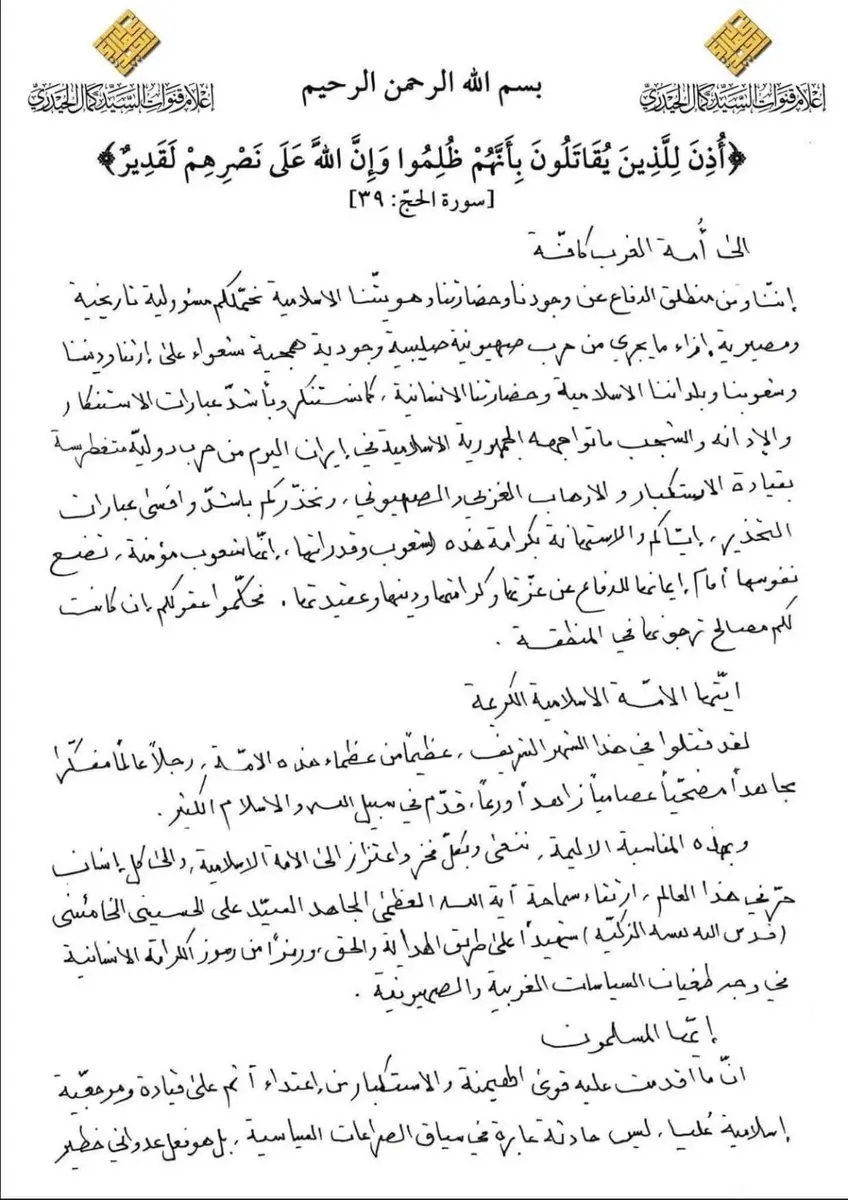 إعلام قنوات السيد كمال الحيدري
إعلام قنوات السيد كمال الحيدري
بسم الله الرحمن الرحيم
﴿أُذِنَ لِلَّذِينَ يُقَاتَلُونَ بِأَنَّهُمْ ظُلِمُوا وَإِنَّ اللَّهَ عَلَى نَصْرِهِمْ لَقَدِيرٌ﴾
[سورة الحجّ: ٣٩]
الى أُمة الغرب كافّة
إننّا ومن منطلق الدفاع عن وجودنا وحضارتنا وهويتّنا الاسلامية نحمّلكم مسؤولية تاريخية
ومصيرية إزاء ما يجري من حرب صهيونية صليبية وجودية همجية شعواء على إرثنا وديننا
وشعوبنا وبلداننا الاسلامية وحضارتنا الانسانية، كما نستنكر وبأشدّ عبارات الاستنكار
والإدانه والشجب ما تواجهه الجمهورية الاسلامية في إيران اليوم من حرب دوليّة متغطرسة
بقيادة الاستكبار والارهاب الغربي والصهيوني، ونحذّركم باشدّ واقسى عبارات
التحذير، إيّاكم والاستهانة بكرامة هذه الشعوب وقدراتها، إنّها شعوب مؤمنة، تضع
نفوسها أمام إيمانها للدفاع عن عزّتها وكرامتها ودينها وعقيدتها. فحكّموا عقولكم إن كانت
لكم مصالح ترجونها في المنطقة.
ايّتها الامّة الاسلامية الكريمة
لقد قتلوا في هذا الشهر الشريف، عظيماً من عظماء هذه الامّة، رجلاً عالماً مفكّراً
مجاهداً مضحّياً عصامياً زاهداً ورعاً، قدّم في سبيل الله والاسلام الكثير.
وبهذه المناسبة الاليمة، ننعى وبكلّ فخر واعتزاز الى الامة الاسلامية، والى كل إنسان
حرّ في هذا العالم، ارتقاء سماحة آية الله العظمى المجاهد السيّد علي الحسيني الخامنئي
(قدس الله نفسه الزكيّة) شهيداً على طريق الهداية والحق، ورمزاً من رموز الكرامة الانسانية
في وجه طغيان السياسات الغربية والصهيونية.
إيّها المسلمون
انّ ما أقدمت عليه قوى الهيمنة والاستكبار من إعتداء آثم على قيادة ومرجعيّة
إسلامية عُليا، ليس حادثة عابرة في سياق الصراعات السياسية، بل هو فعل عدواني خطير